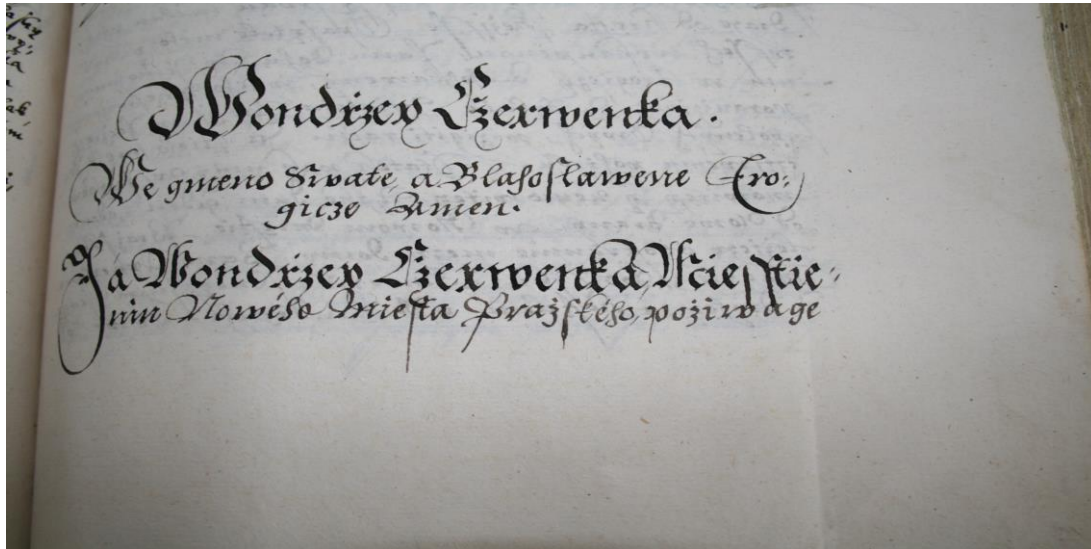 Wondržey Cžerwenka.
We gmeno Swate, a Blahoslawene Tro:
gicze Amen.
Ja Wondržey Cžerwenka, Miesstie-
nin Nowého Miesta Pražského, požiwage